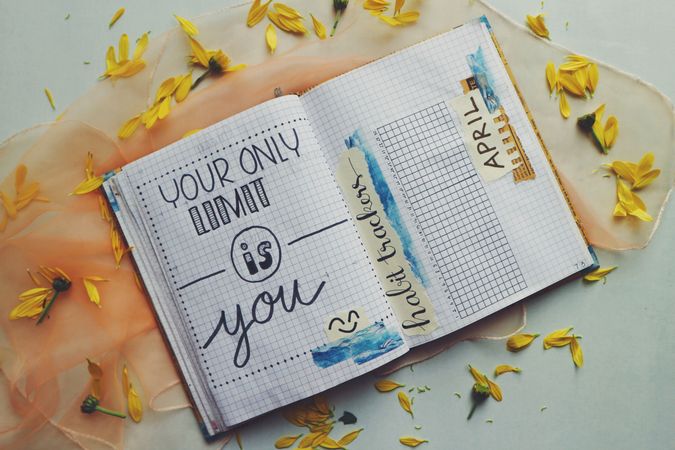 YOUR ONLY
LIMIT
is
you
habit trackers
APRIL